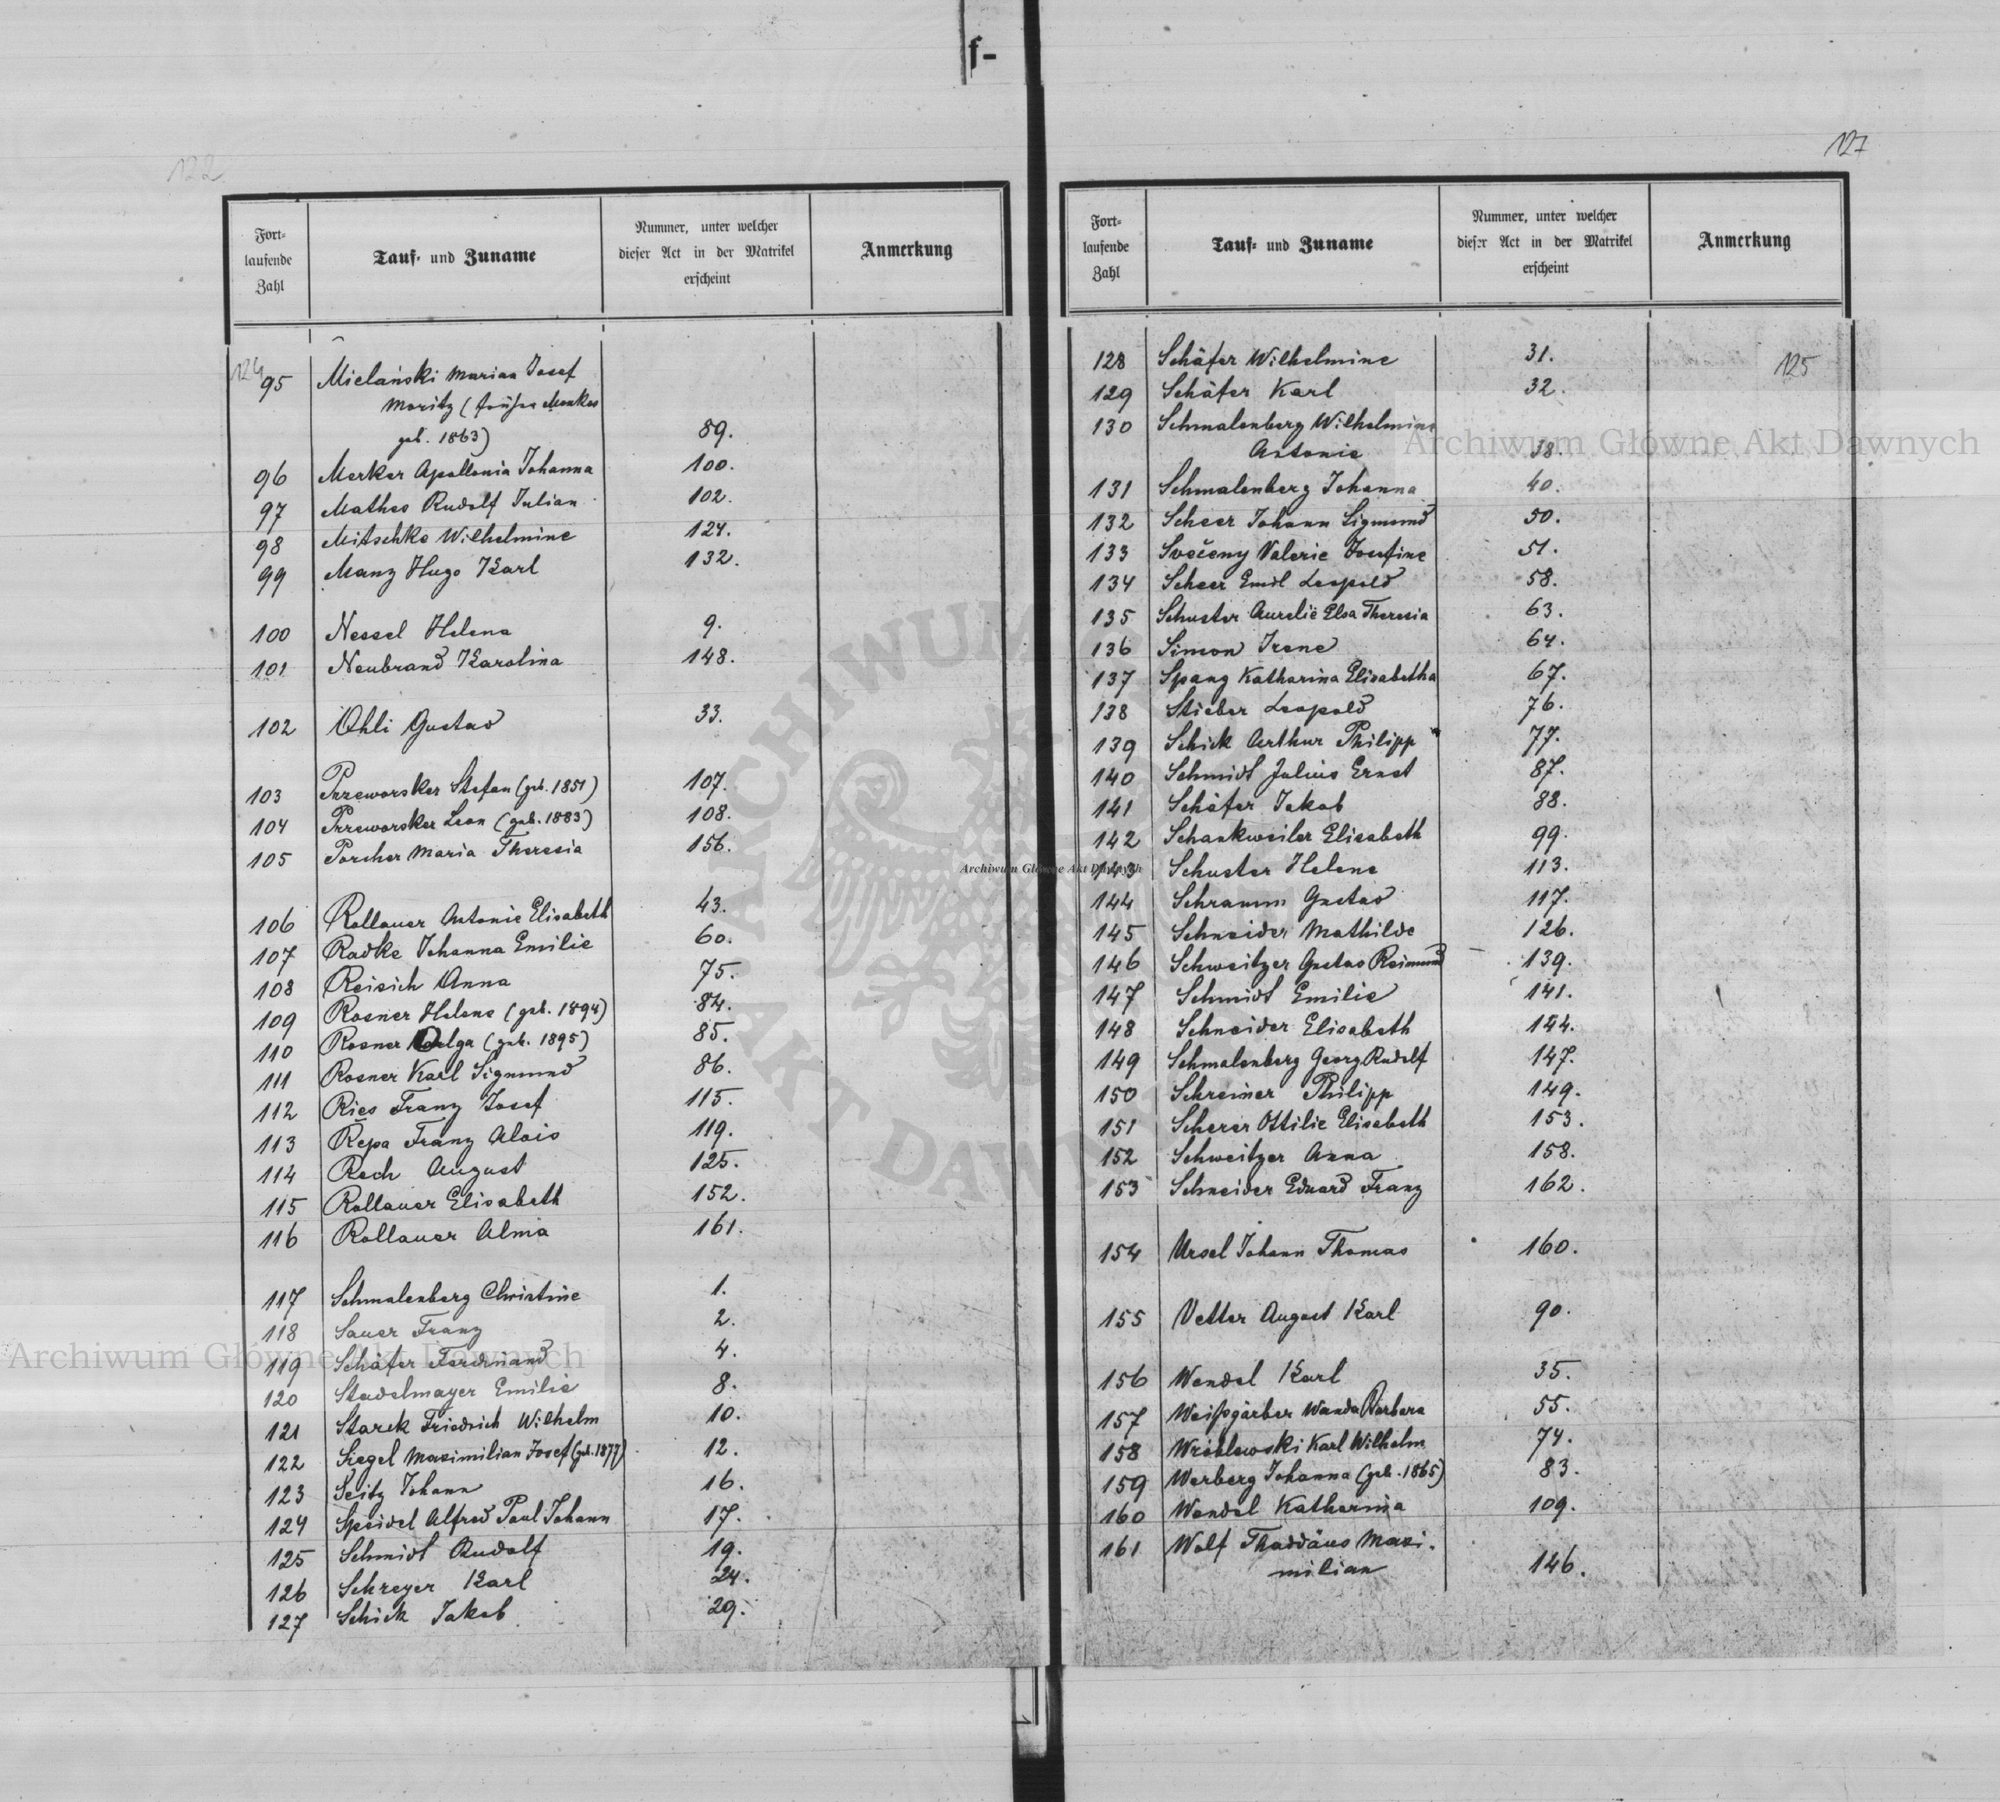 f-
122
Fort-
laufende
Zahl
Tauf- und Zuname
Nummer, unter welcher
dieser Act in der Matrikel
erscheint
Anmerkung
124
95 Mielański Marian Josef
Moritz (früher Monkos
geb. 1863) 89.
96 Merker Apollonia Johanna 100.
97 Mathes Rudolf Julian 102.
98 Mitschke Wilhelmine 124.
99 Manz Hugo Karl 132.
100 Nessel Helena 9.
101 Neubrand Karolina 148.
102 Ohli Gustav 33.
103 Przeworsker Stefan (geb. 1851) 107.
104 Przeworsker Leon (geb. 1883) 108.
105 Porcher Maria Theresia 156.
106 Rollauer Antonie Elisabeth 43.
107 Radke Johanna Emilie 60.
108 Reisich Anna 75.
109 Rosner Helene (geb. 1894) 84.
110 Rosner Olga (geb. 1895) 85.
111 Rosner Karl Sigmund 86.
112 Ries Franz Josef 115.
113 Řepa Franz Alois 119.
114 Rech August 125.
115 Rollauer Elisabeth 152.
116 Rollauer Alma 161.
117 Schmalenberg Christine 1.
118 Sauer Franz 2.
119 Schäfer Ferdinand 4.
120 Stadelmayer Emilie 8.
121 Starck Friedrich Wilhelm 10.
122 Siegel Maximilian Josef (geb. 1877) 12.
123 Seitz Johann 16.
124 Speidel Alfred Paul Johann 17.
125 Schmidt Rudolf 19.
126 Schreyer Karl 24.
127 Schick Jakob 29.
127
Fort-
laufende
Zahl
Tauf- und Zuname
Nummer, unter welcher
dieser Act in der Matrikel
erscheint
Anmerkung
125
128 Schäfer Wilhelmine 31.
129 Schäfer Karl 32.
130 Schmalenberg Wilhelmine
Antonie 38.
131 Schmalenberg Johanna 40.
132 Scheer Johann Sigmund 50.
133 Svočeny Valerie Josefine 51.
134 Scheer Emil Leopold 58.
135 Schuster Aurelie Elsa Theresia 63.
136 Simon Irene 64.
137 Spang Katharina Elisabetha 67.
138 Stieber Leopold 76.
139 Schick Arthur Philipp 77.
140 Schmidt Julius Ernst 87.
141 Schäfer Jakob 88.
142 Schankweiler Elisabeth 99.
143 Schuster Helene 113.
144 Schramm Gustav 117.
145 Schneider Mathilde 126.
146 Schweitzer Gustav Reimund 139.
147 Schmidt Emilie 141.
148 Schneider Elisabeth 144.
149 Schmalenberg Georg Rudolf 147.
150 Schreiner Philipp 149.
151 Scherer Ottilie Elisabeth 153.
152 Schweitzer Anna 158.
153 Schneider Eduard Franz 162.
154 Ursel Johann Thomas 160.
155 Vetter August Karl 90.
156 Wendel Karl 35.
157 Weißgärber Wanda Barbara 55.
158 Wróblewski Karl Wilhelm 74.
159 Werberg Johanna (geb. 1865) 83.
160 Wendel Katharina 109.
161 Wolf Thaddäus Maxi-
milian 146.
Archiwum Główne Akt Dawnych
Archiwum Główne Akt Dawnych
Archiwum Główne Akt Dawnych